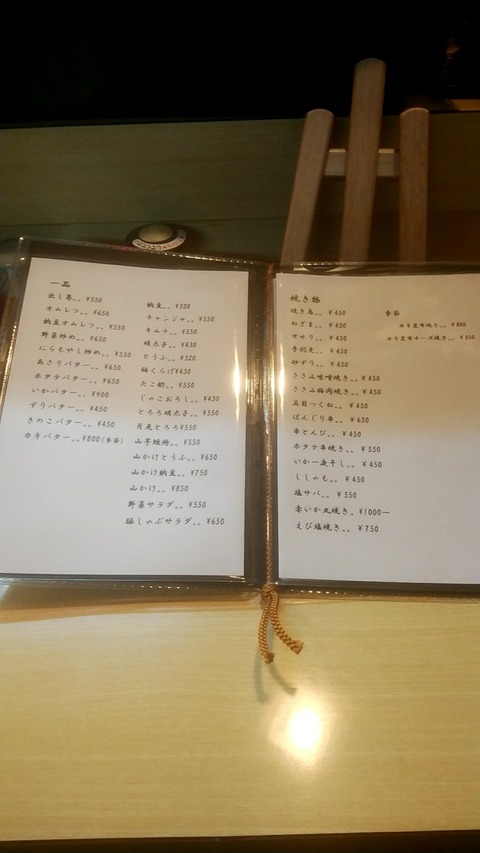 一品
出し巻。。¥550
オムレツ。。¥650
納豆オムレツ。。¥550
野菜炒め。。¥650
にらもやし炒め。。¥550
あさりバター。。¥650
ホタテバター。。¥650
いかバター。。¥900
ずりバター。。¥450
きのこバター。。¥450
カキバター。。¥800(季節)
納豆。。¥320
チャンジャ。。¥550
キムチ。。¥550
明太子。。¥430
とうふ。。¥320
梅くらげ¥430
たこ酢。。¥550
じゃこおろし。。¥430
とろろ明太子。。¥550
月見とろろ¥550
山芋短冊。。¥550
山かけとうふ。。¥650
山かけ納豆。。¥750
山かけ。。¥850
野菜サラダ。。¥550
豚しゃぶサラダ。。¥650
焼き物
焼き鳥。。¥450
ねぎま。。¥450
せせり。。¥450
手羽先。。¥450
砂ずり。。¥450
ささみ味噌焼き。。¥450
ささみ梅肉焼き。。¥450
五目つくね。。¥450
ぼんじり串。。¥650
串とんび。。¥450
ホタテ串焼き。。¥550
いか一夜干し。。¥450
ししゃも。。¥450
塩サバ。。¥550
赤いか丸焼き。¥1000〜
えび塩焼き。。¥750
季節
カキ昆布焼き。。¥800
カキ昆布チーズ焼き。。¥850